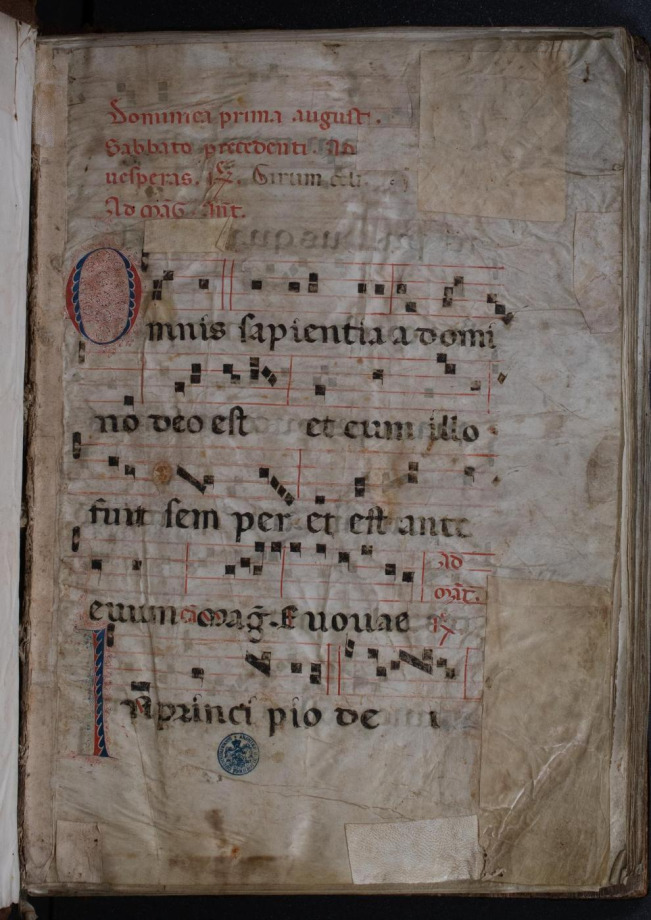 Dominica prima august.
Sabbato precedenti. Ad
uesperas. R. Girum celi.
Ad mag. Ant.
Omnis sapientia a domi
no deo est et cum illo
fuit sem per et est ante
euum mag. E uouae
ad
mat.
R
In princi pio de